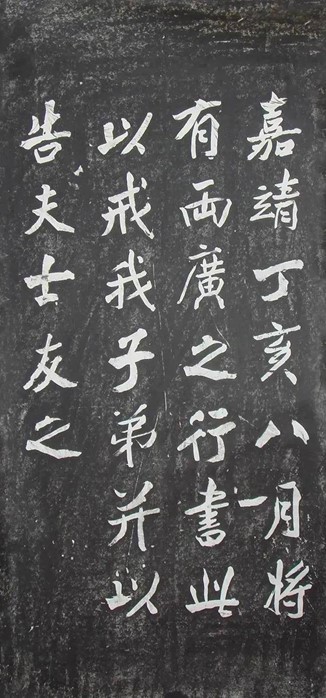 嘉靖丁亥八月將
有兩廣之行書此
以戒我子弟并以
告夫士友之